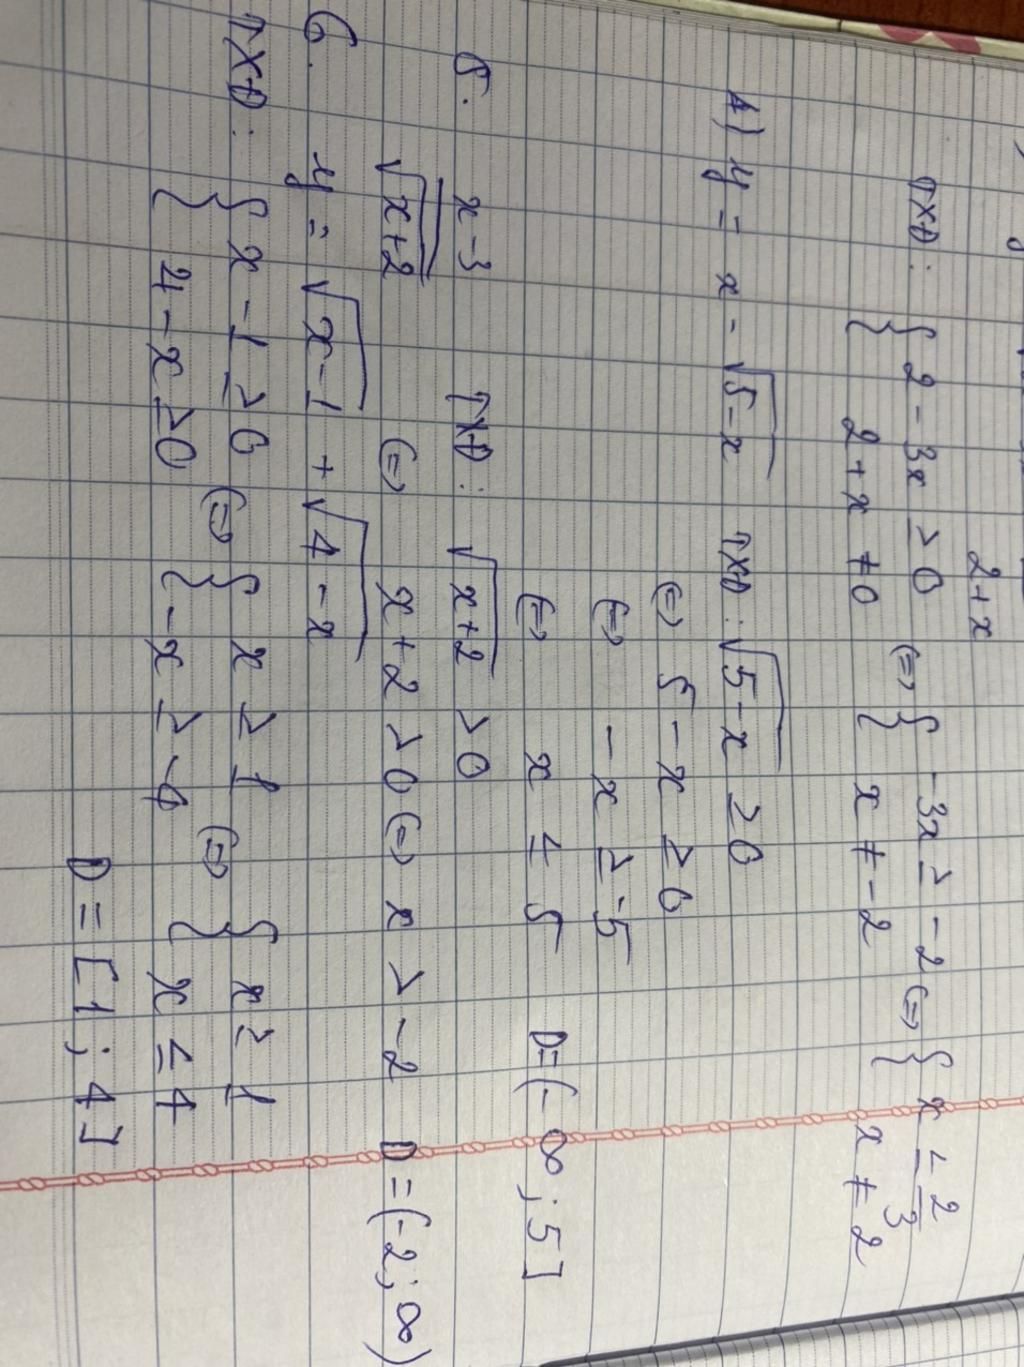 2+x
TXĐ: { 2 - 3x ≥ 0 (=) { -3x ≥ -2 (=) { x ≤ 2/3
{ 2+x ≠ 0 { x ≠ -2 { x ≠ 2
4) y = x - √5-x TXĐ: √5-x ≥ 0
(=) 5 - x ≥ 0
(=) -x ≥ -5
(=) x ≤ 5 D = (-∞; 5]
5. x-3 TXĐ: √x+2 > 0
√x+2 (=) x+2 > 0 (=) x > -2 D = (-2; ∞)
6. y = √x-1 + √4-x
TXĐ: { x - 1 ≥ 0 (=) { x ≥ 1 (=) { x ≥ 1
{ 4 - x ≥ 0 { -x ≥ -4 { x ≤ 4
D = [1; 4]